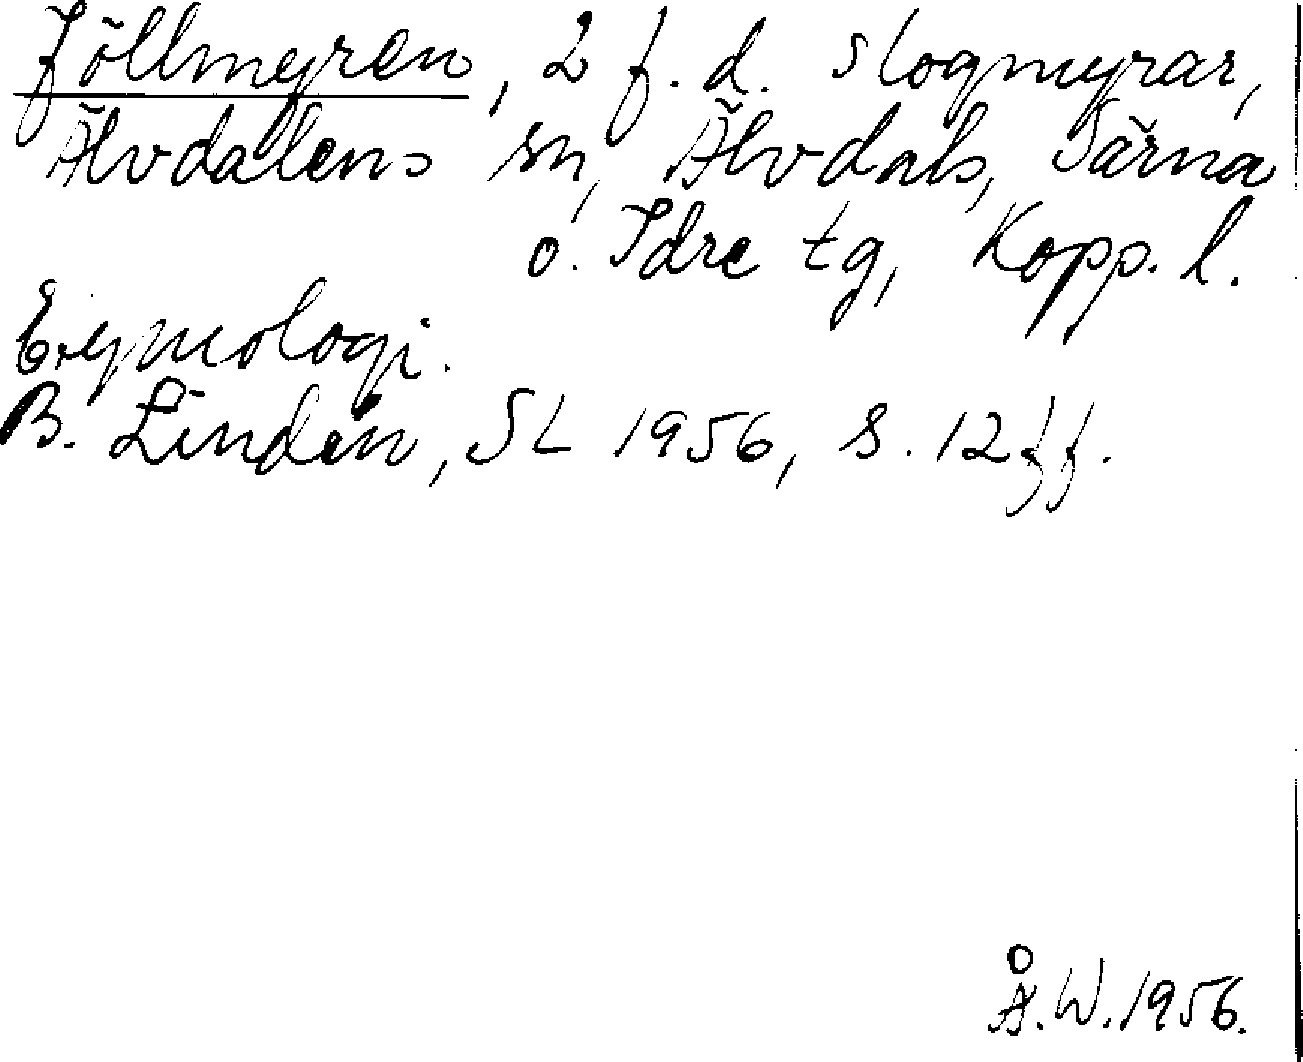 Jöllmyren, 2 f. d. slogmyrar,
Älvdalens sn, Älvdals, Särna
o. Idre tg, Kopp. l.
Etymologi.
B. Lindén, SL 1956, s. 12 ff.
Å.W. 1956.